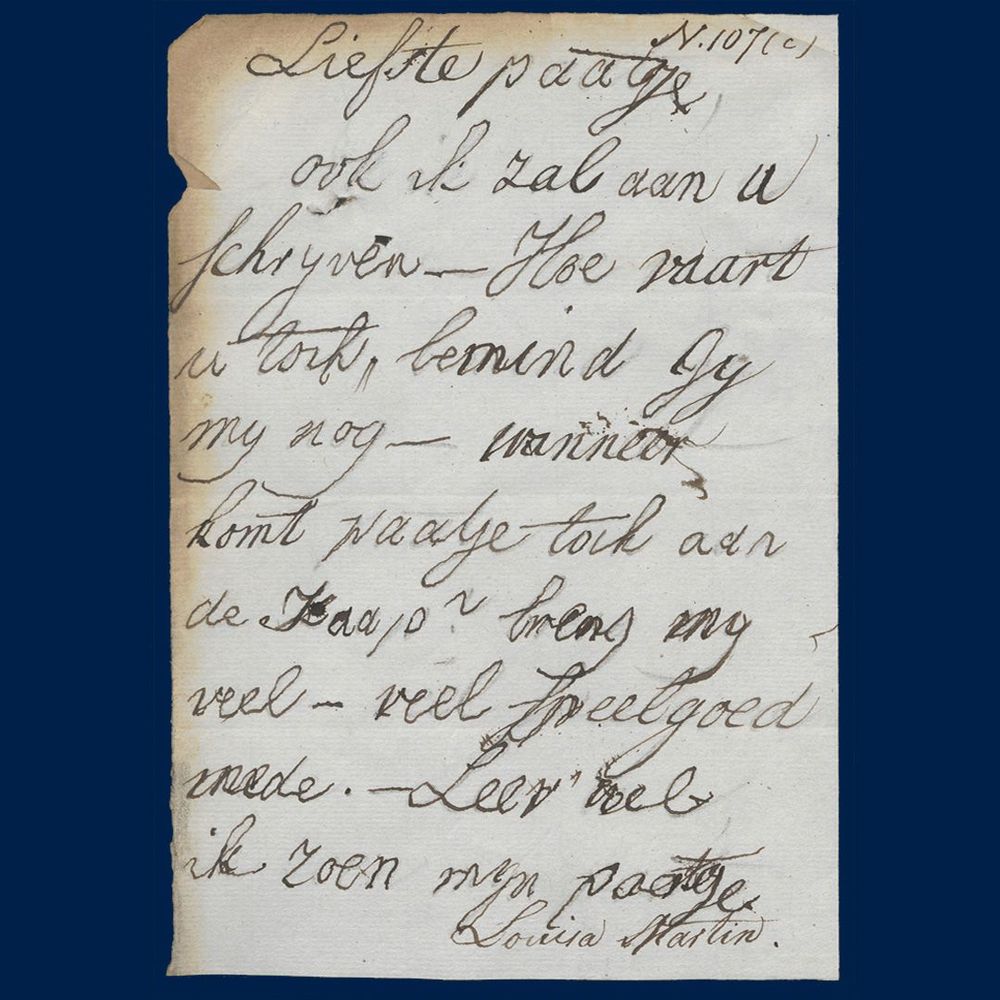 N. 107 (c)
Liefste paatje
ook ik zal aan u
schryven — Hoe vaart
u toch, bemind Gy
my nog — wanneer
komt paatje toch aan
de Kaap? breng my
veel — veel speelgoed
mede. — Leef wel
ik zoen myn paatje
Louisa Martin.